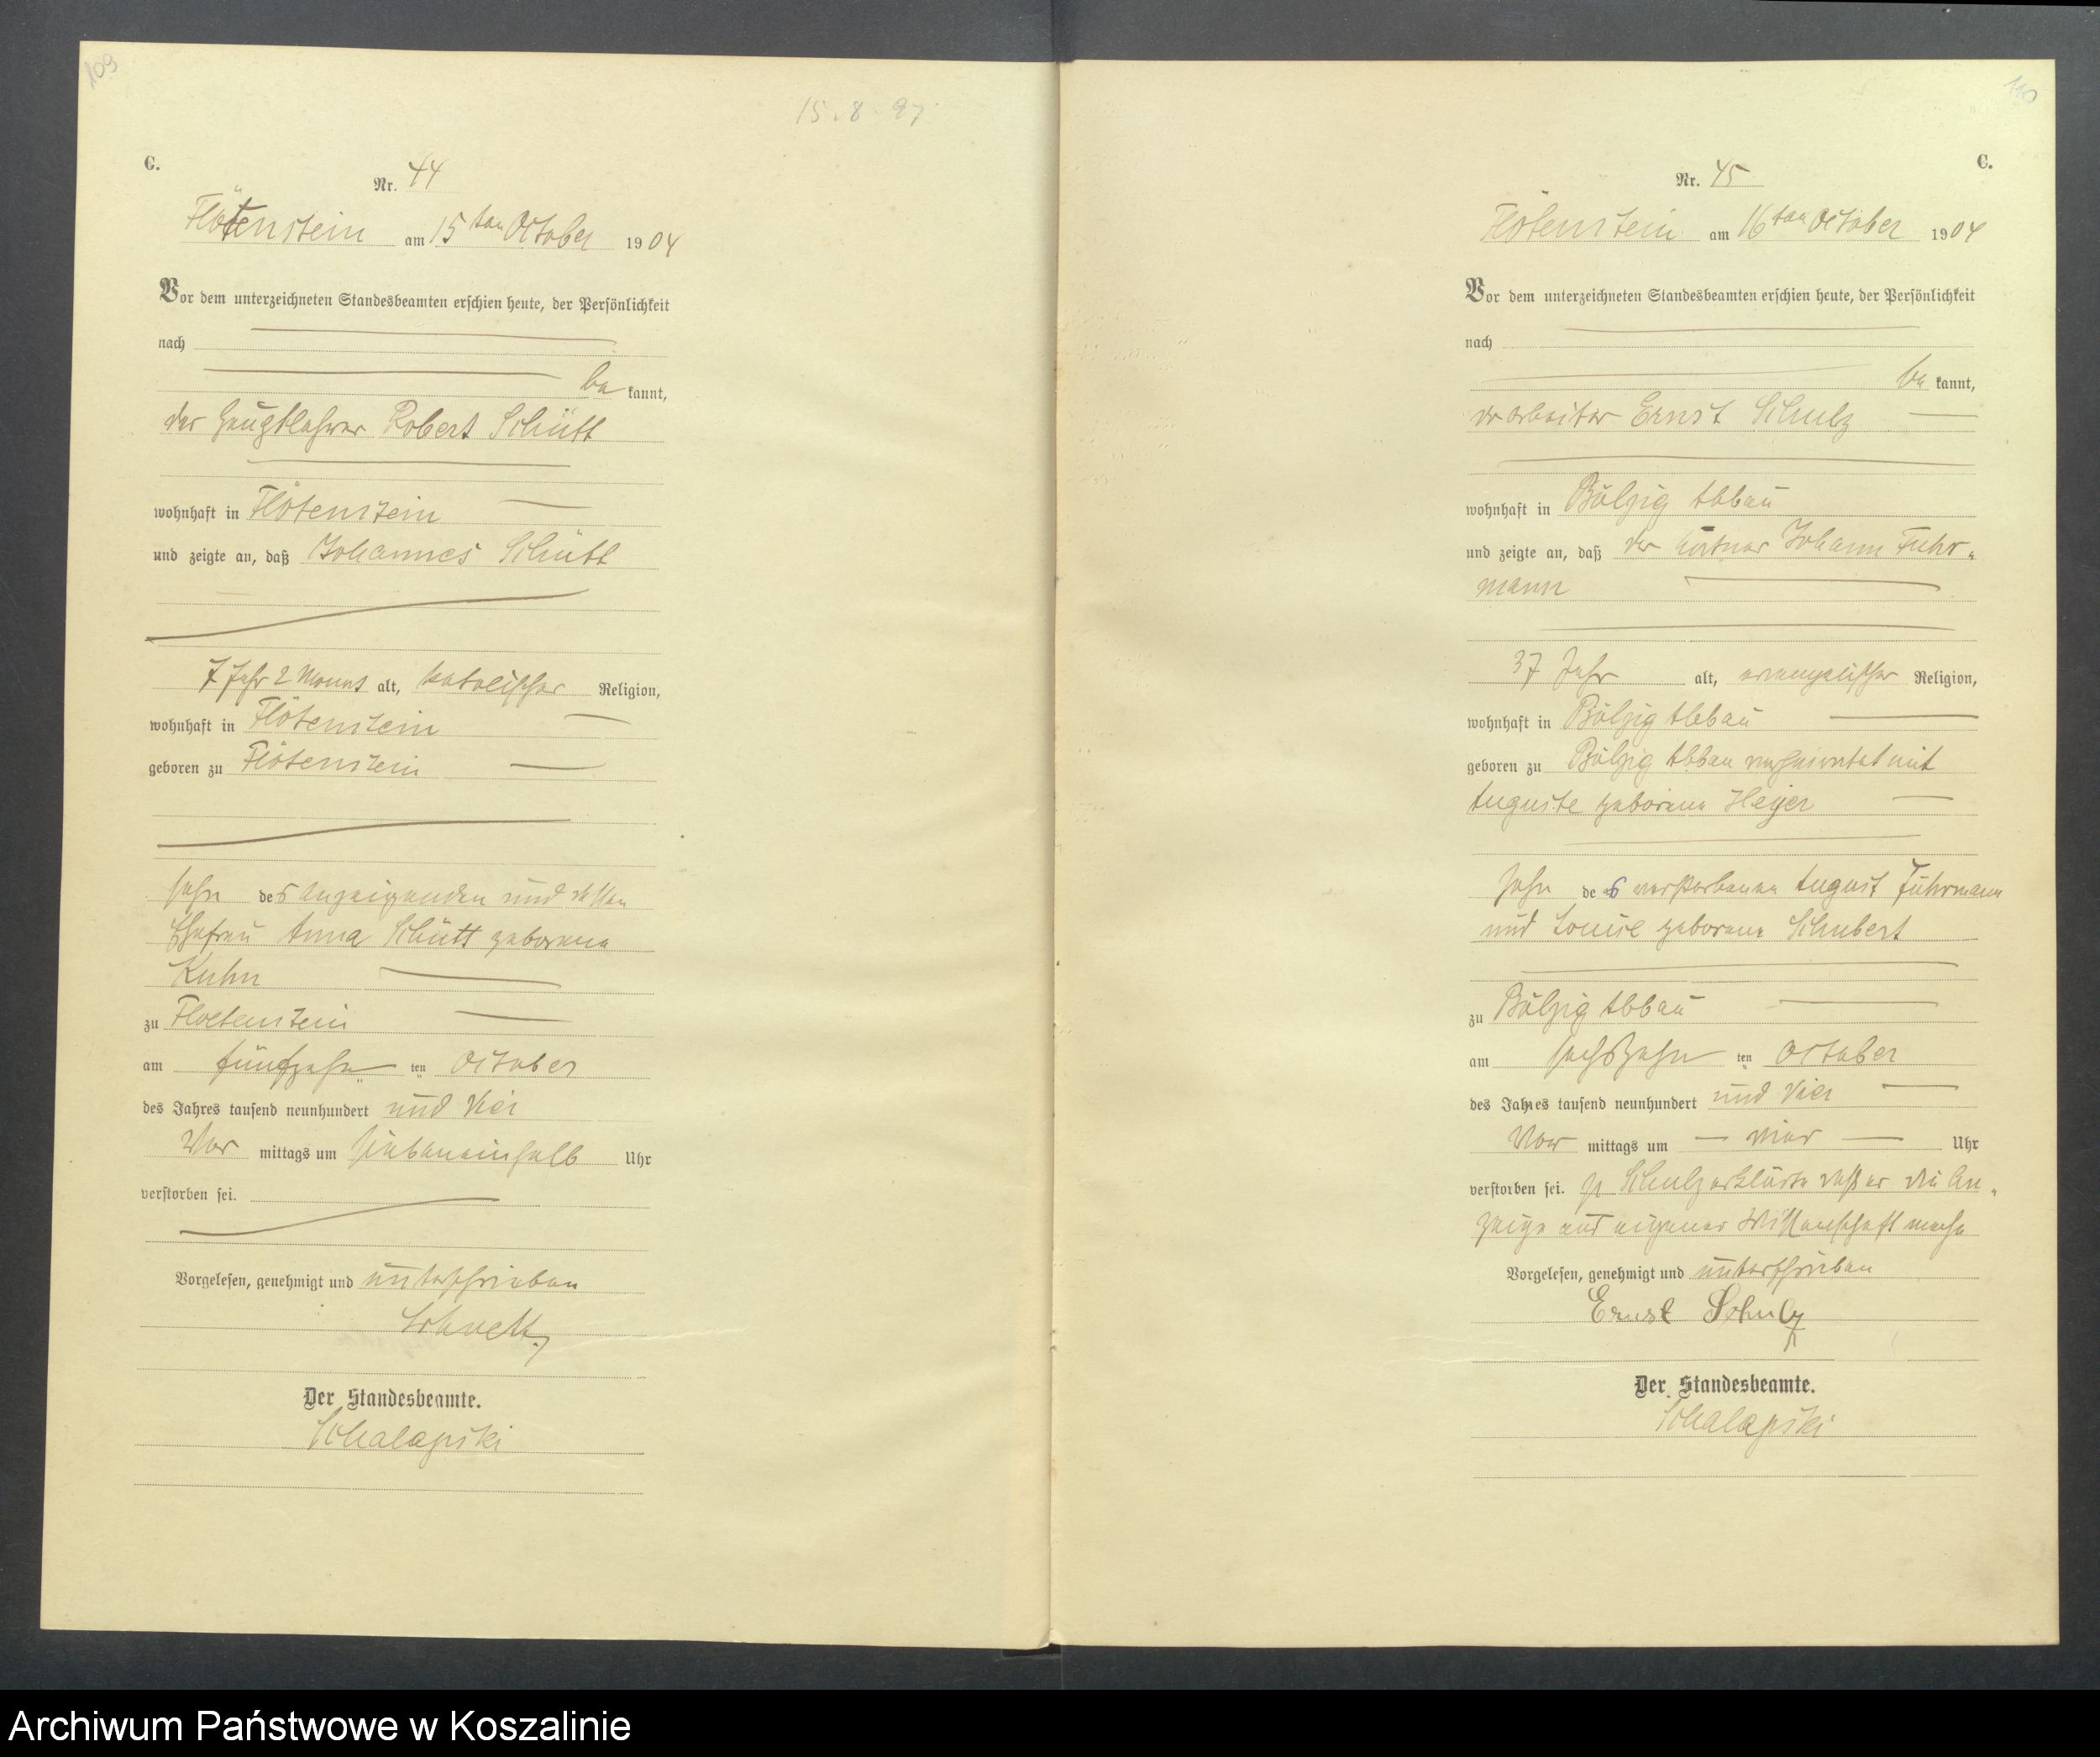 109
15.8.97
C.
Nr. 44
Flötenstein am 15ten October 1904
Vor dem unterzeichneten Standesbeamten erschien heute, der Persönlichkeit
nach
bekannt,
der Hauptlehrer Robert Schütt
wohnhaft in Flötenstein
und zeigte an, daß Johannes Schütt
7 Jahr 2 Monat alt, katolischer Religion,
wohnhaft in Flötenstein
geboren zu Flötenstein
Sohn des Anzeigenden und dessen
Ehefrau Anna Schütt geborene
Kuhn
zu Floetenstein
am fünfzehnten October
des Jahres tausend neunhundert und Vier
Vor mittags um siebeneinhalb Uhr
verstorben sei.
Vorgelesen, genehmigt und unterschrieben
Schuett
Der Standesbeamte.
Schalapski
110
C.
Nr. 45
Flötenstein am 16ten October 1904
Vor dem unterzeichneten Standesbeamten erschien heute, der Persönlichkeit
nach
bekannt,
der Arbeiter Ernst Schulz
wohnhaft in Bölzig Abbau
und zeigte an, daß der Johann Fuhr-
mann
37 Jahr alt, evangelischer Religion,
wohnhaft in Bölzig Abbau
geboren zu Bölzig Abbau verheirathet mit
Auguste geborene Heyer
Sohn des verstorbenen August Fuhrmann
und Louise geborene Schubert
zu Bölzig Abbau
am sechszehnten October
des Jahres tausend neunhundert und Vier
Vor mittags um vier Uhr
verstorben sei. p Schulz erklärte daß er die An-
zeige aus eigener Wissenschaft mache
Vorgelesen, genehmigt und unterschrieben
Ernst Schulz
Der Standesbeamte.
Schalapski
Archiwum Państwowe w Koszalinie